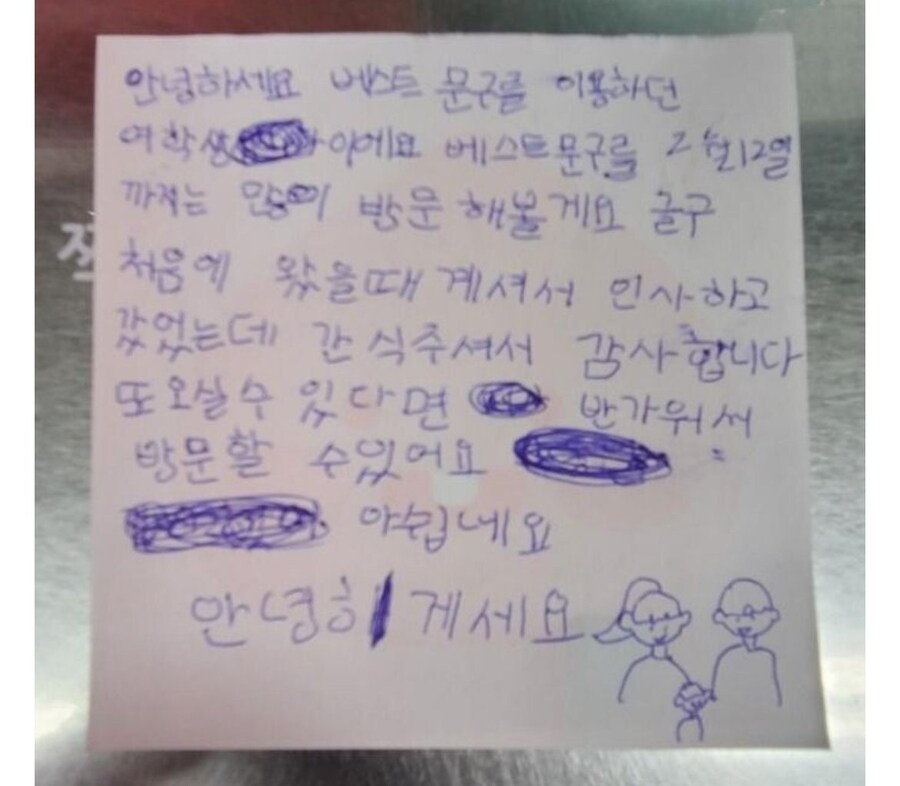 안녕하세요 베스트 문구를 이용하던
여학생 이에요 베스트문구를 2월12일
까지는 많이 방문 해볼게요 글구
처음에 왔을때 계셔서 인사하고
갔었는데 간식주셔서 감사합니다
또 오실수 있다면 반가워서
방문할 수있어요
아쉽네요
안녕히 게세요